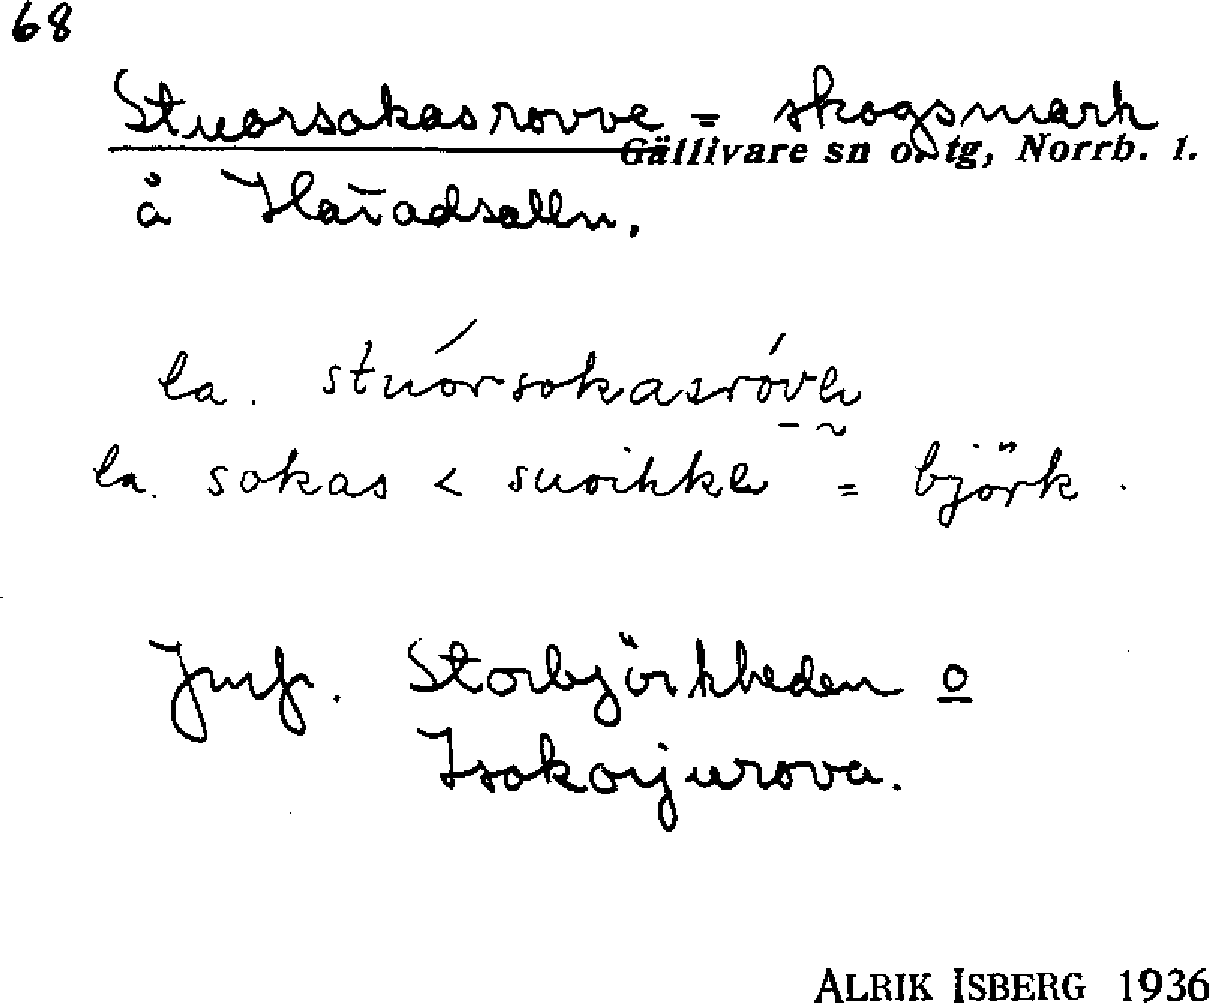 68
Stuorsakasrovve = skogsmark
Gällivare sn o. tg, Norrb. l.
å Häradsallm.
la. stuórsokasróvve
la. sokas < suoihke = björk.
Jmfr. Storbjörkheden o
Isokoijurova.
ALRIK ISBERG 1936